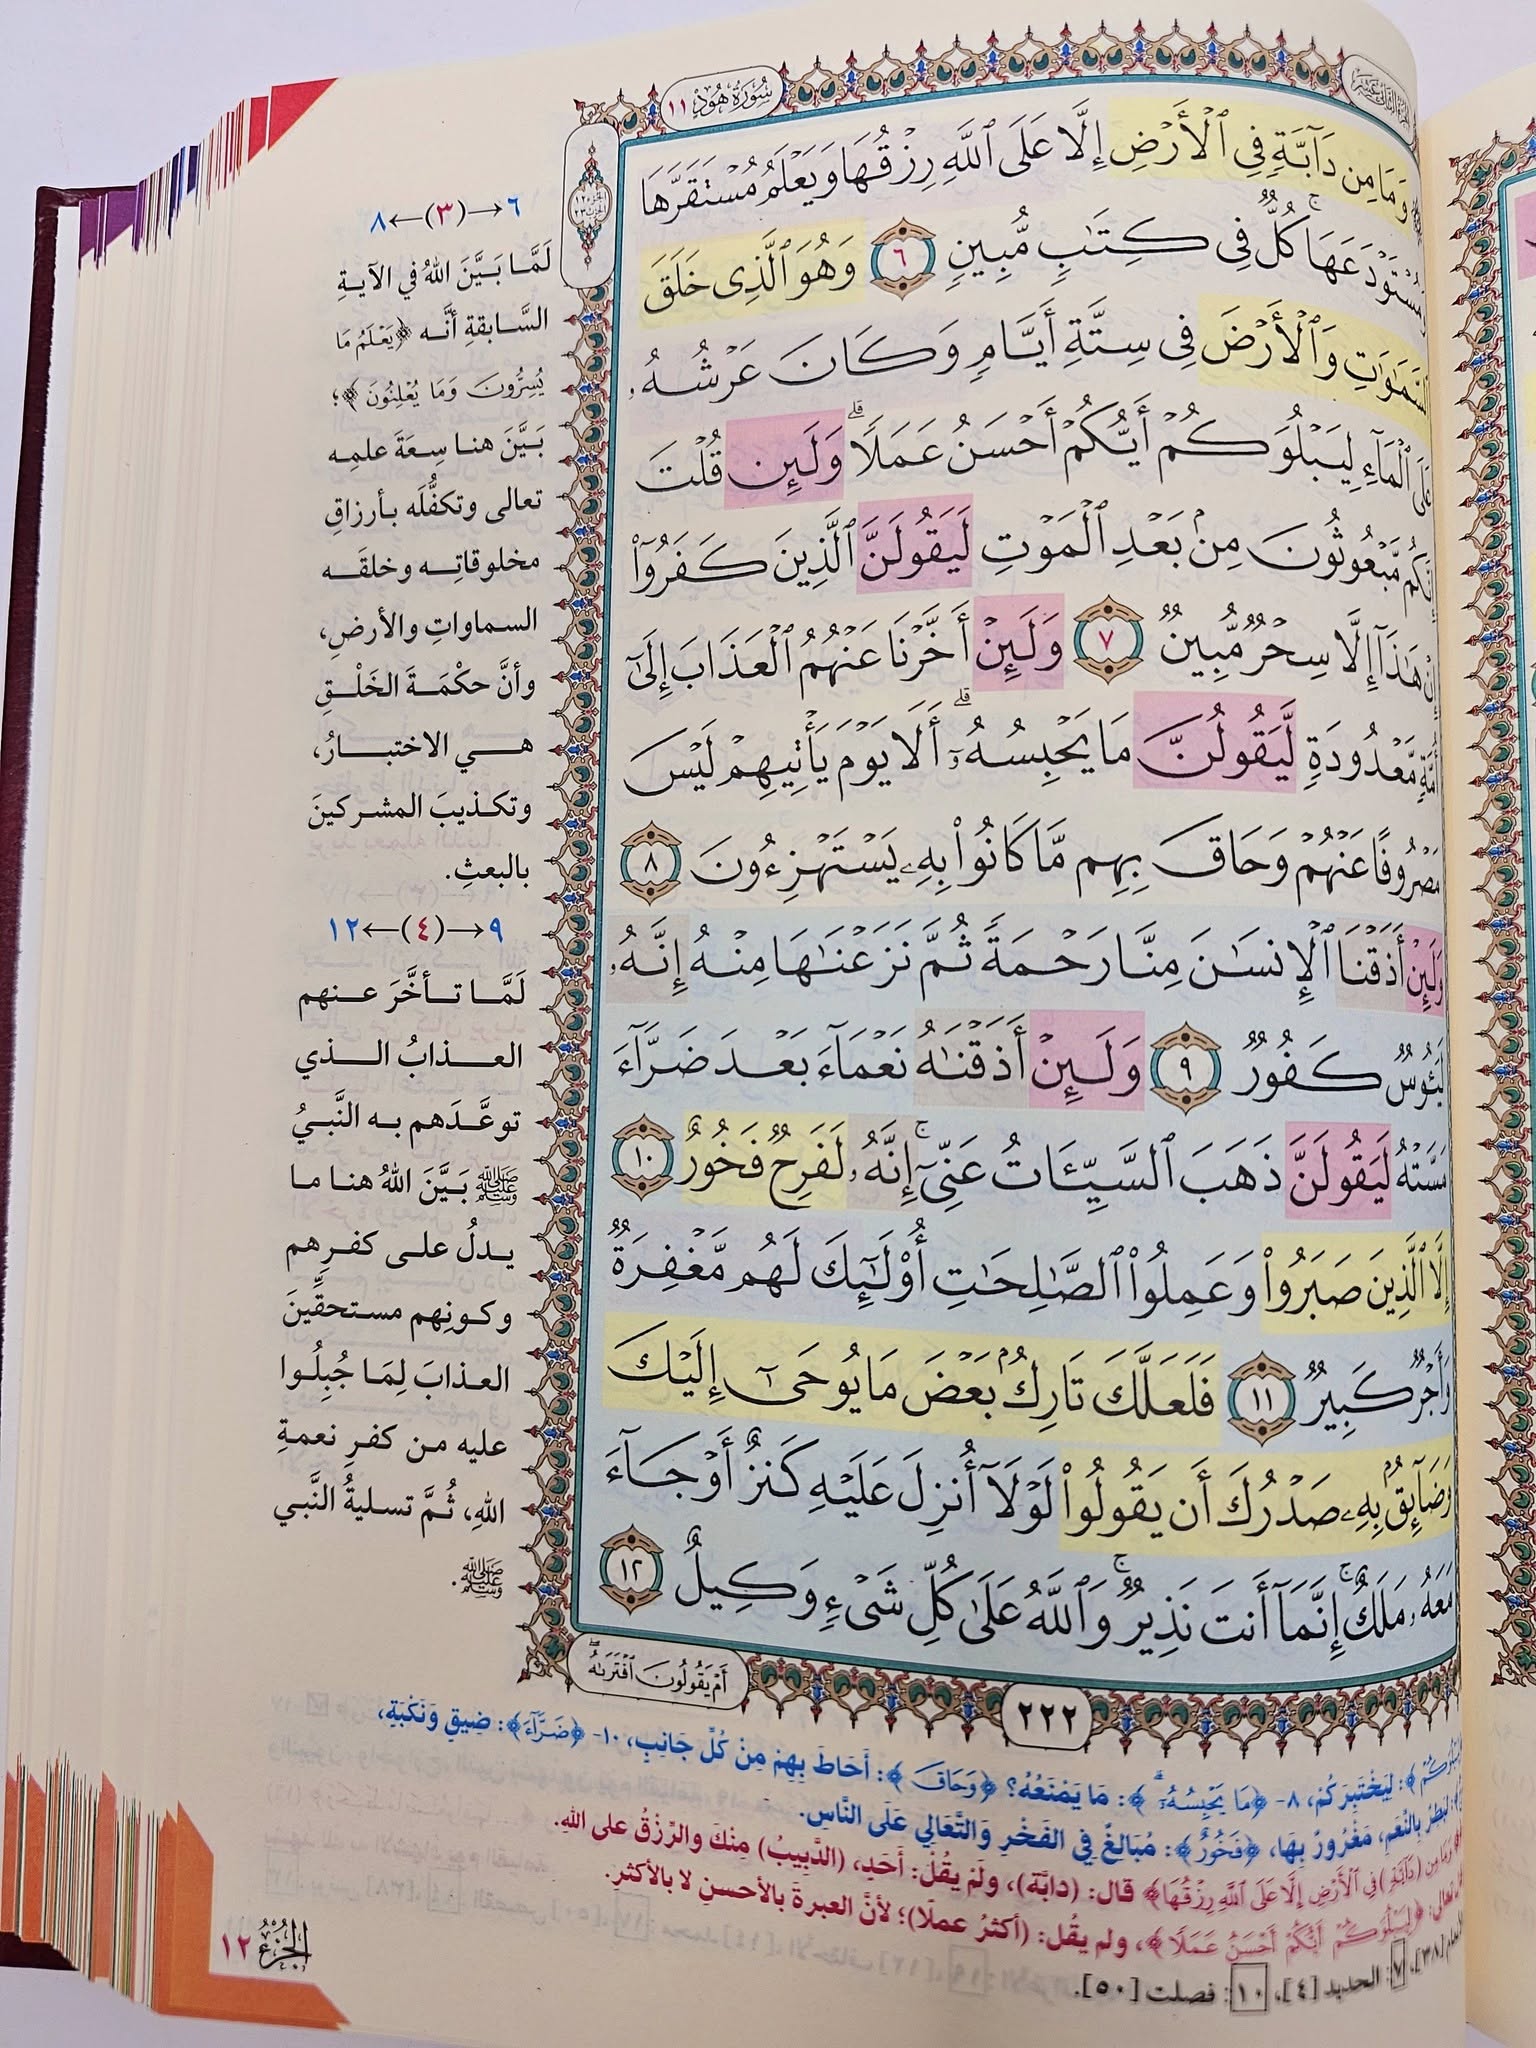 سُورَةُ هُودٍ ١١
الجزء ١٢
الحزب ٢٣
وَمَا مِن دَآبَّةٍ فِى ٱلْأَرْضِ إِلَّا عَلَى ٱللَّهِ رِزْقُهَا وَيَعْلَمُ مُسْتَقَرَّهَا
وَمُسْتَوْدَعَهَا ۚ كُلٌّ فِى كِتَٰبٍ مُّبِينٍ ٦ وَهُوَ ٱلَّذِى خَلَقَ
ٱلسَّمَٰوَٰتِ وَٱلْأَرْضَ فِى سِتَّةِ أَيَّامٍ وَكَانَ عَرْشُهُۥ
عَلَى ٱلْمَآءِ لِيَبْلُوَكُمْ أَيُّكُمْ أَحْسَنُ عَمَلًا ۗ وَلَئِن قُلْتَ
إِنَّكُم مَّبْعُوثُونَ مِنۢ بَعْدِ ٱلْمَوْتِ لَيَقُولَنَّ ٱلَّذِينَ كَفَرُوٓا۟
إِنْ هَٰذَآ إِلَّا سِحْرٌ مُّبِينٌ ٧ وَلَئِنْ أَخَّرْنَا عَنْهُمُ ٱلْعَذَابَ إِلَىٰٓ
أُمَّةٍ مَّعْدُودَةٍ لَّيَقُولُنَّ مَا يَحْبِسُهُۥٓ ۗ أَلَا يَوْمَ يَأْتِيهِمْ لَيْسَ
مَصْرُوفًا عَنْهُمْ وَحَاقَ بِهِم مَّا كَانُوا۟ بِهِۦ يَسْتَهْزِءُونَ ٨
وَلَئِنْ أَذَقْنَا ٱلْإِنسَٰنَ مِنَّا رَحْمَةً ثُمَّ نَزَعْنَٰهَا مِنْهُ إِنَّهُۥ
لَيَـُٔوسٌ كَفُورٌ ٩ وَلَئِنْ أَذَقْنَٰهُ نَعْمَآءَ بَعْدَ ضَرَّآءَ
مَسَّتْهُ لَيَقُولَنَّ ذَهَبَ ٱلسَّيِّـَٔاتُ عَنِّىٓ ۚ إِنَّهُۥ لَفَرِحٌ فَخُورٌ ١٠
إِلَّا ٱلَّذِينَ صَبَرُوا۟ وَعَمِلُوا۟ ٱلصَّٰلِحَٰتِ أُو۟لَٰٓئِكَ لَهُم مَّغْفِرَةٌ
وَأَجْرٌ كَبِيرٌ ١١ فَلَعَلَّكَ تَارِكٌۢ بَعْضَ مَا يُوحَىٰٓ إِلَيْكَ
وَضَآئِقٌۢ بِهِۦ صَدْرُكَ أَن يَقُولُوا۟ لَوْلَآ أُنزِلَ عَلَيْهِ كَنزٌ أَوْ جَآءَ
مَعَهُۥ مَلَكٌ ۚ إِنَّمَآ أَنتَ نَذِيرٌ ۚ وَٱللَّهُ عَلَىٰ كُلِّ شَىْءٍ وَكِيلٌ ١٢
أَمْ يَقُولُونَ ٱفْتَرَىٰهُ ۖ
٢٢٢
٦→(٣)←٨
لَمَّا بَيَّنَ اللهُ في الآيةِ
السَّابقةِ أنَّه ﴿يَعْلَمُ مَا
يُسِرُّونَ وَمَا يُعْلِنُونَ﴾؛
بَيَّنَ هنا سِعَةَ علمِه
تعالى وتكفُّلَه بأرزاقِ
مخلوقاتِه وخلقَه
السماواتِ والأرضِ،
وأنَّ حكْمَةَ الخَلْقِ
هي الاختبارُ،
وتكذيبَ المشركينَ
بالبعثِ.
٩→(٤)←١٢
لَمَّا تأخَّرَ عنهم
العذابُ الذي
توعَّدَهم به النَّبيُ
ﷺ بَيَّنَ اللهُ هنا ما
يدلُ على كفرِهم
وكونِهم مستحقِّينَ
العذابَ لِمَا جُبِلُوا
عليه من كفرِ نعمةِ
اللهِ، ثُمَّ تسليةُ النَّبي
ﷺ.
﴾: لِيَخْتَبِرَكُمْ، ٨- ﴿مَا يَحْبِسُهُۥٓ ۗ﴾: مَا يَمْنَعُهُ؟ ﴿وَحَاقَ﴾: أَحَاطَ بِهِمْ مِنْ كُلِّ جَانِبٍ، ١٠- ﴿ضَرَّآءَ﴾: ضِيقٍ وَنَكْبَةٍ،
بِالنِّعَمِ، مَغْرُورٌ بِهَا، ﴿فَخُورٌ﴾: مُبَالِغٌ فِي الفَخْرِ وَالتَّعَالِي عَلَى النَّاسِ.
(دَآبَّةٍ) فِي ٱلْأَرْضِ إِلَّا عَلَى ٱللَّهِ رِزْقُهَا﴾ قال: (دابَّة)، ولَمْ يقُلْ: أَحَدٍ، (الدَّبِيبُ) مِنْكَ والرِّزْقُ على اللهِ.
تعالى: ﴿لِيَبْلُوَكُمْ أَيُّكُمْ أَحْسَنُ عَمَلًا﴾، ولم يقُل: (أكثرُ عملًا)؛ لأنَّ العبرةَ بالأحسنِ لا بالأكثرِ.
[٣٨]، ٧: الحديد [٤]، ١٠: فصلت [٥٠].
الجُزْءُ ١٢